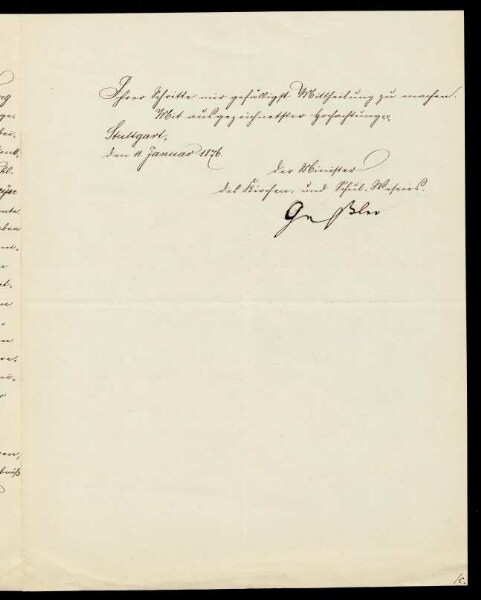 Ihrer Schritte mir gefälligst Mittheilung zu machen.
Mit ausgezeichnetster Hochachtung
Stuttgart,
den 11 Januar 1876.
der Minister
des Kirchen- und Schul-Wesens.
Geßler